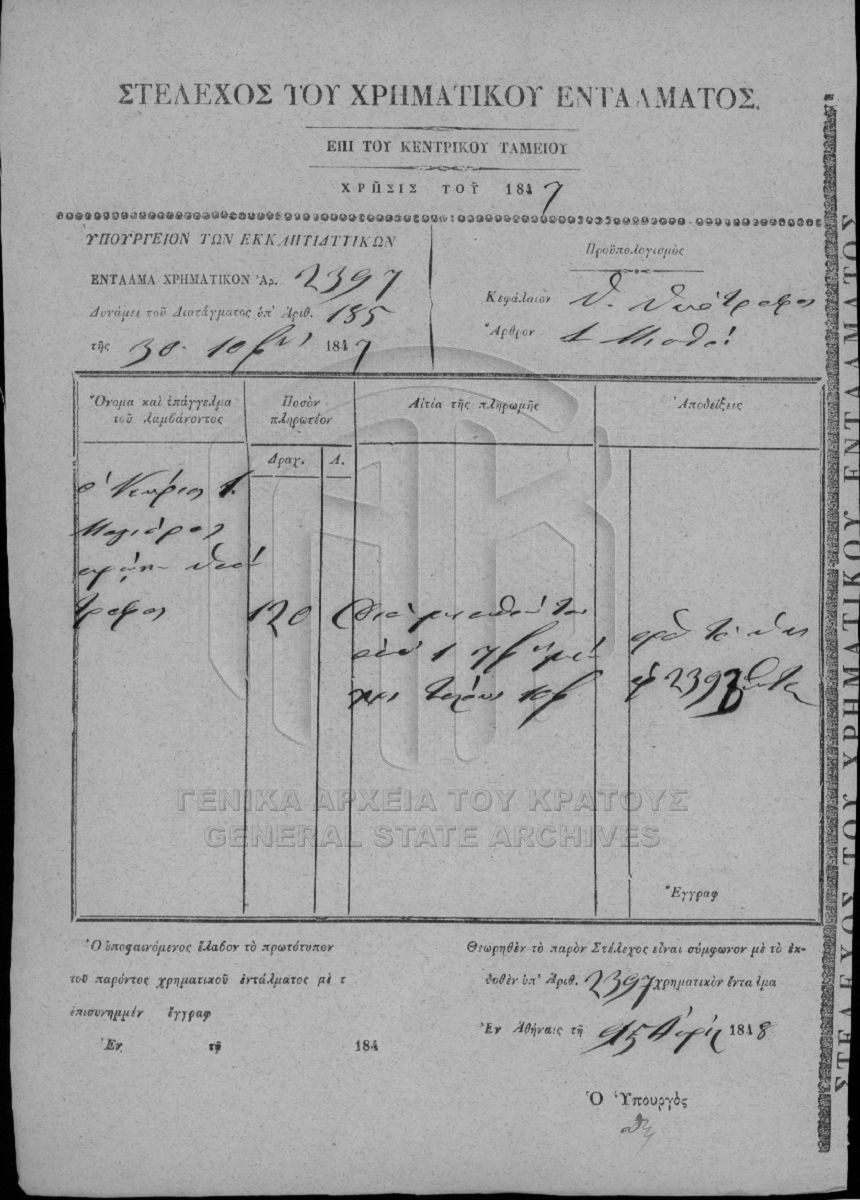 ΣΤΕΛΕΧΟΣ ΤΟΥ ΧΡΗΜΑΤΙΚΟΥ ΕΝΤΑΛΜΑΤΟΣ.
ΕΠΙ ΤΟΥ ΚΕΝΤΡΙΚΟΥ ΤΑΜΕΙΟΥ
ΧΡΗΣΙΣ ΤΟΥ 1847
ΥΠΟΥΡΓΕΙΟΝ ΤΩΝ ΕΚΚΛΗΣΙΑΣΤΙΚΩΝ
ΕΝΤΑΛΜΑ ΧΡΗΜΑΤΙΚΟΝ Ἀρ. 2397
Δυνάμει τοῦ Διατάγματος ὑπ' Ἀριθ. 185
τῆς 30 10βρίου 1847
Προϋπολογισμὸς
Κεφάλαιον Θ. Ὑπότροφοι
Ἄρθρον 1 Μισθοὶ
Ὄνομα καὶ ἐπάγγελμα τοῦ λαμβάνοντος
Ποσὸν πληρωτέον
Αἰτία τῆς πληρωμῆς
Ἀποδείξεις
Δραχ. Λ.
ὁ Κύριος
τροφος 120
2397
ΓΕΝΙΚΑ ΑΡΧΕΙΑ ΤΟΥ ΚΡΑΤΟΥΣ
GENERAL STATE ARCHIVES
Ἔγγραφ
Ὁ ὑποφαινόμενος ἔλαβον τὸ πρωτότυπον
τοῦ παρόντος χρηματικοῦ ἐντάλματος μὲ τ
ἐπισυνημμέν ἔγγραφ
Ἐν τῇ 184
Θεωρηθὲν τὸ παρὸν Στέλεχος εἶναι σύμφωνον μὲ τὸ ἐκ-
δοθὲν ὑπ' Ἀριθ. 2397 χρηματικὸν ἔνταλμα
Ἐν Ἀθήναις τῇ 15 Ἀπρίλ 1848
Ὁ Ὑπουργὸς
ΣΤΕΛΕΧΟΣ ΤΟΥ ΧΡΗΜΑΤΙΚΟΥ ΕΝΤΑΛΜΑΤΟΣ